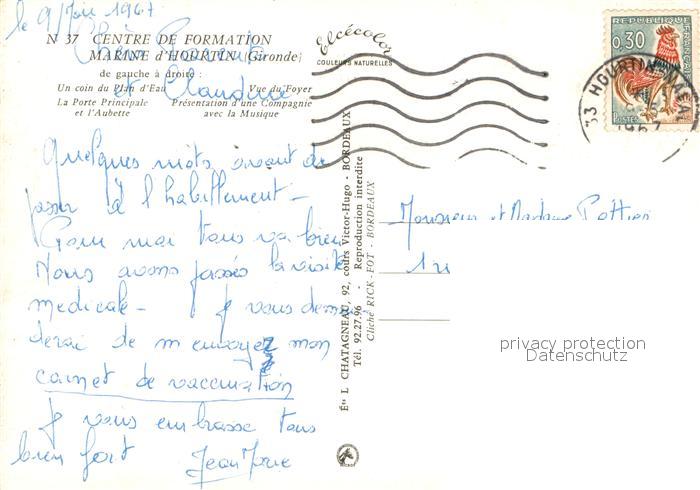 le 9 Juin 1967
N 37 CENTRE DE FORMATION
MARINE d'HOURTIN (Gironde)
de gauche à droite :
Un coin du Plan d'Eau Vue du Foyer
La Porte Principale Présentation d'une Compagnie
et l'Aubette avec la Musique
et Claudine
Elcécolor
COULEURS NATURELLES
REPUBLIQUE FRANÇAISE
0,30
POSTES
33 HOURTIN-NAVAL
1967
Quelques mots avant de
passer à l'habillement -
Pour moi tous va bien
Nous avons passés la visite
medicale - Je vous deman
derai de m'envoyez mon
carnet de vaccination
Je vous embrasse tous
bien fort Jean Marie
Éts L. CHATAGNEAU, 92, cours Victor-Hugo - BORDEAUX
Tél. 92.27.96 - Reproduction interdite
Cliché RICK-FOT - BORDEAUX
Monsieur et Madame Pottier
privacy protection
Datenschutz